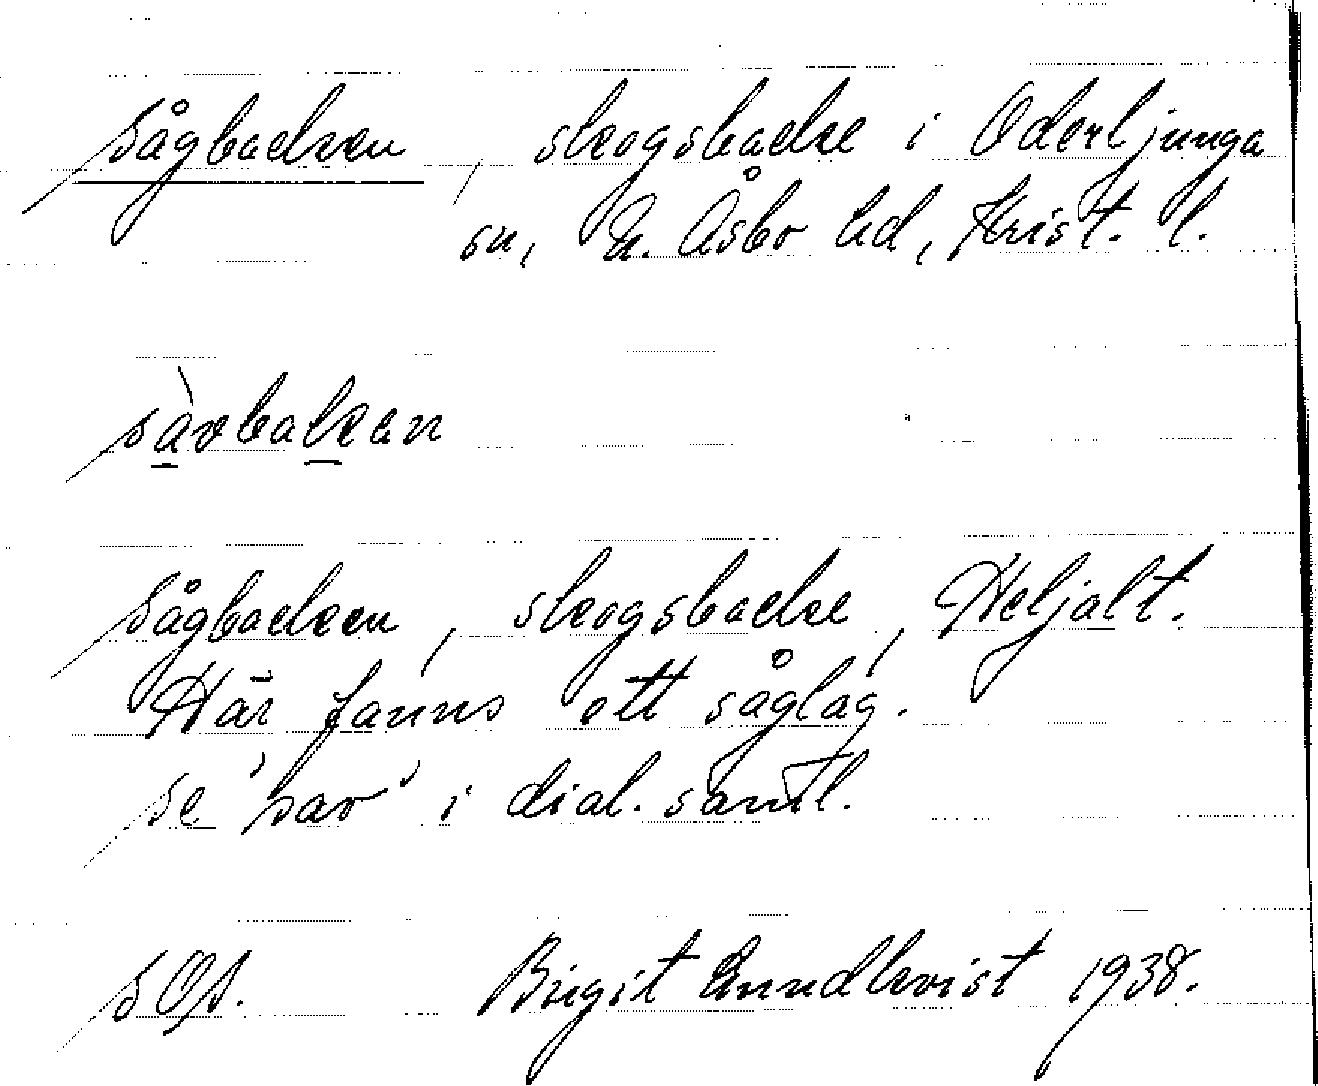 Sågbacken, skogsbacke i Oderljunga
sn, N. Åsbo hd, Krist. l.
sàvbakan
Sågbacken, skogsbacke, Heljalt.
Här fanns ett såglag.
se 'sav' i dial. saml.
SOA. Birgit Lundkvist 1938.